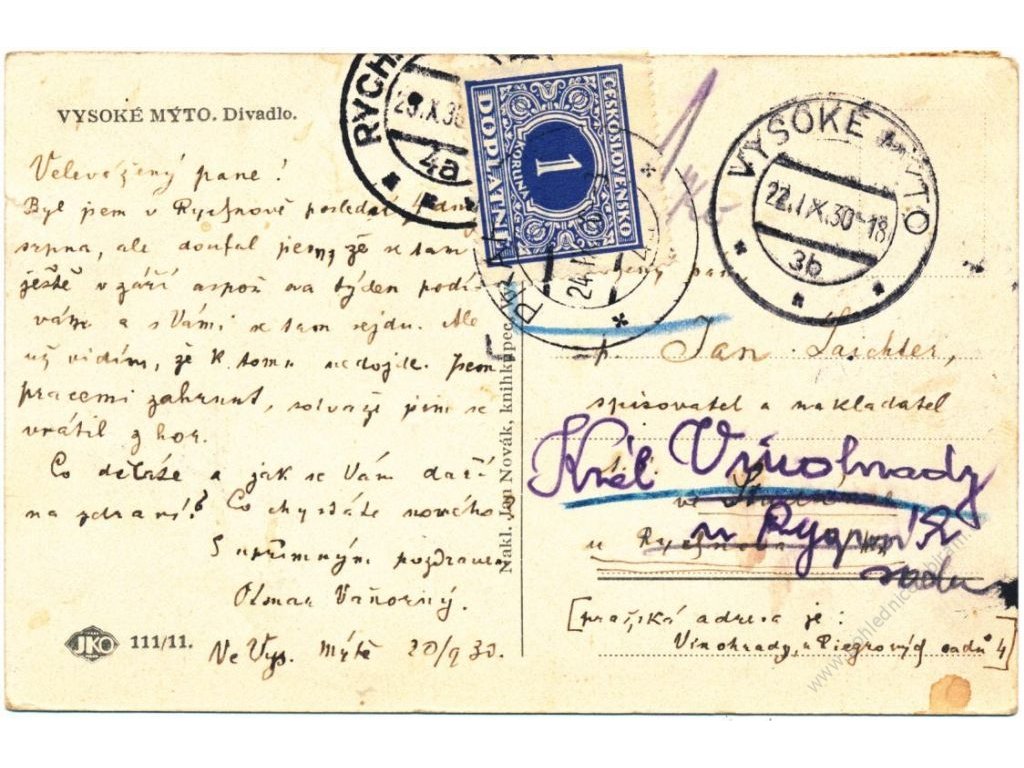 VYSOKÉ MÝTO. Divadlo.
Velevážený pane!
Byl jsem v Rychnově posledně
srpna, ale doufal jsem, že se tam
ještě v září aspoň na týden podí-
vám a s Vámi se tam sejdu. Ale
už vidím, že k tomu nedojde. Jsem
pracemi zahrnut, sotva že jsem se
vrátil z hor.
Co děláte a jak se Vám daří
na zdraví? Co chystáte nového
S upřímným pozdravem
Otmar Vaňorný.
Ve Vys. Mýtě 20/9 30.
JKO 111/11.
Nakl. Jan Novák, knihkupec
RYCH
23.IX.30
4a
ČESKOSLOVENSKO
1
KORUNA
DOPLATNÉ
PRA
24
VYSOKÉ MÝTO
22.IX.30-18
3b
pan
p. Jan Laichter,
spisovatel a nakladatel
Král Vinohrady
ve
u Rychnova
u Rygrov
sadu
[pražská adresa je:
Vinohrady, u Riegrových sadů 4]
www.pohlednice-pribram.